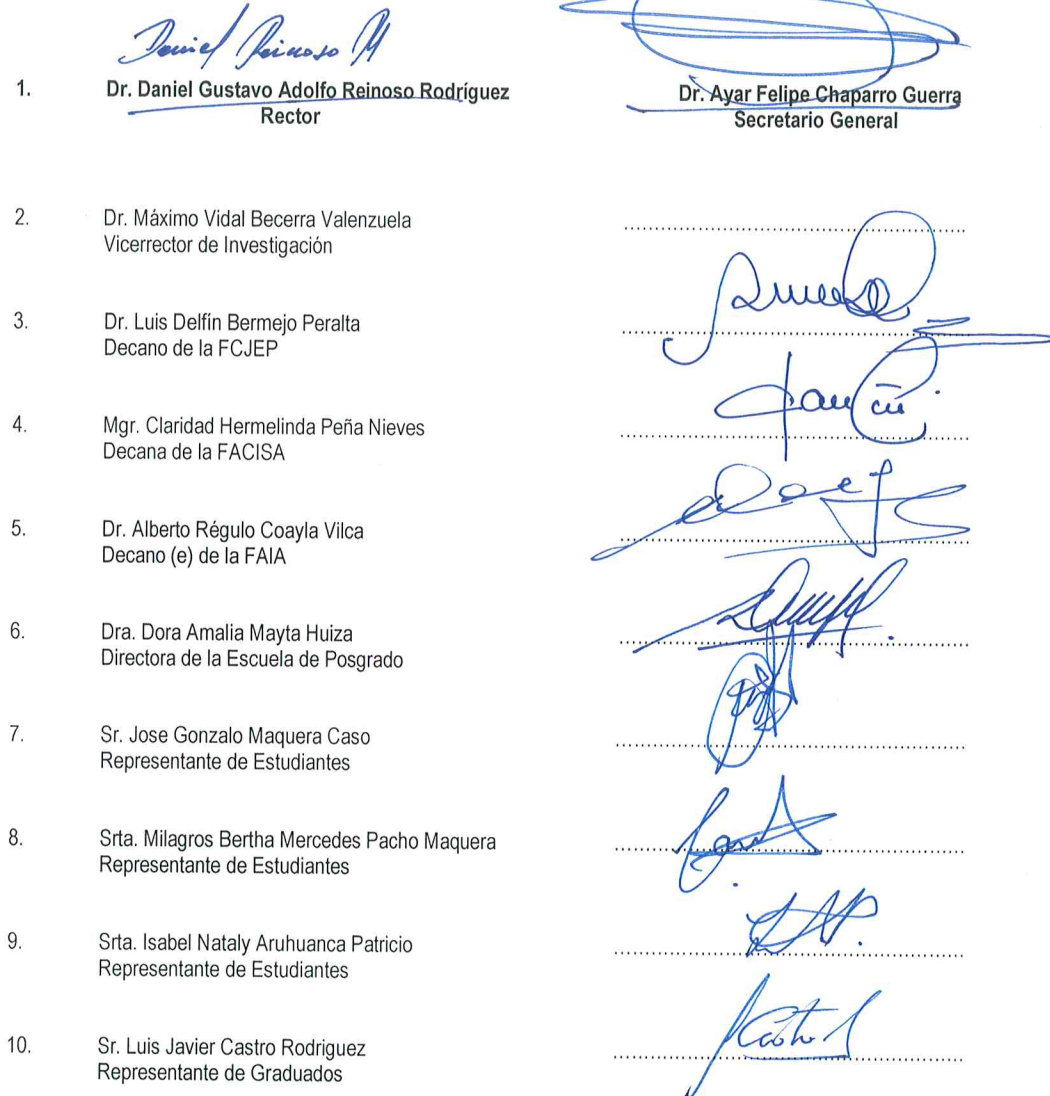 Daniel Reinoso M
1. Dr. Daniel Gustavo Adolfo Reinoso Rodríguez
Rector
Dr. Ayar Felipe Chaparro Guerra
Secretario General
2. Dr. Máximo Vidal Becerra Valenzuela
Vicerrector de Investigación
3. Dr. Luis Delfín Bermejo Peralta
Decano de la FCJEP
4. Mgr. Claridad Hermelinda Peña Nieves
Decana de la FACISA
5. Dr. Alberto Régulo Coayla Vilca
Decano (e) de la FAIA
6. Dra. Dora Amalia Mayta Huiza
Directora de la Escuela de Posgrado
7. Sr. Jose Gonzalo Maquera Caso
Representante de Estudiantes
8. Srta. Milagros Bertha Mercedes Pacho Maquera
Representante de Estudiantes
9. Srta. Isabel Nataly Aruhuanca Patricio
Representante de Estudiantes
10. Sr. Luis Javier Castro Rodriguez
Representante de Graduados